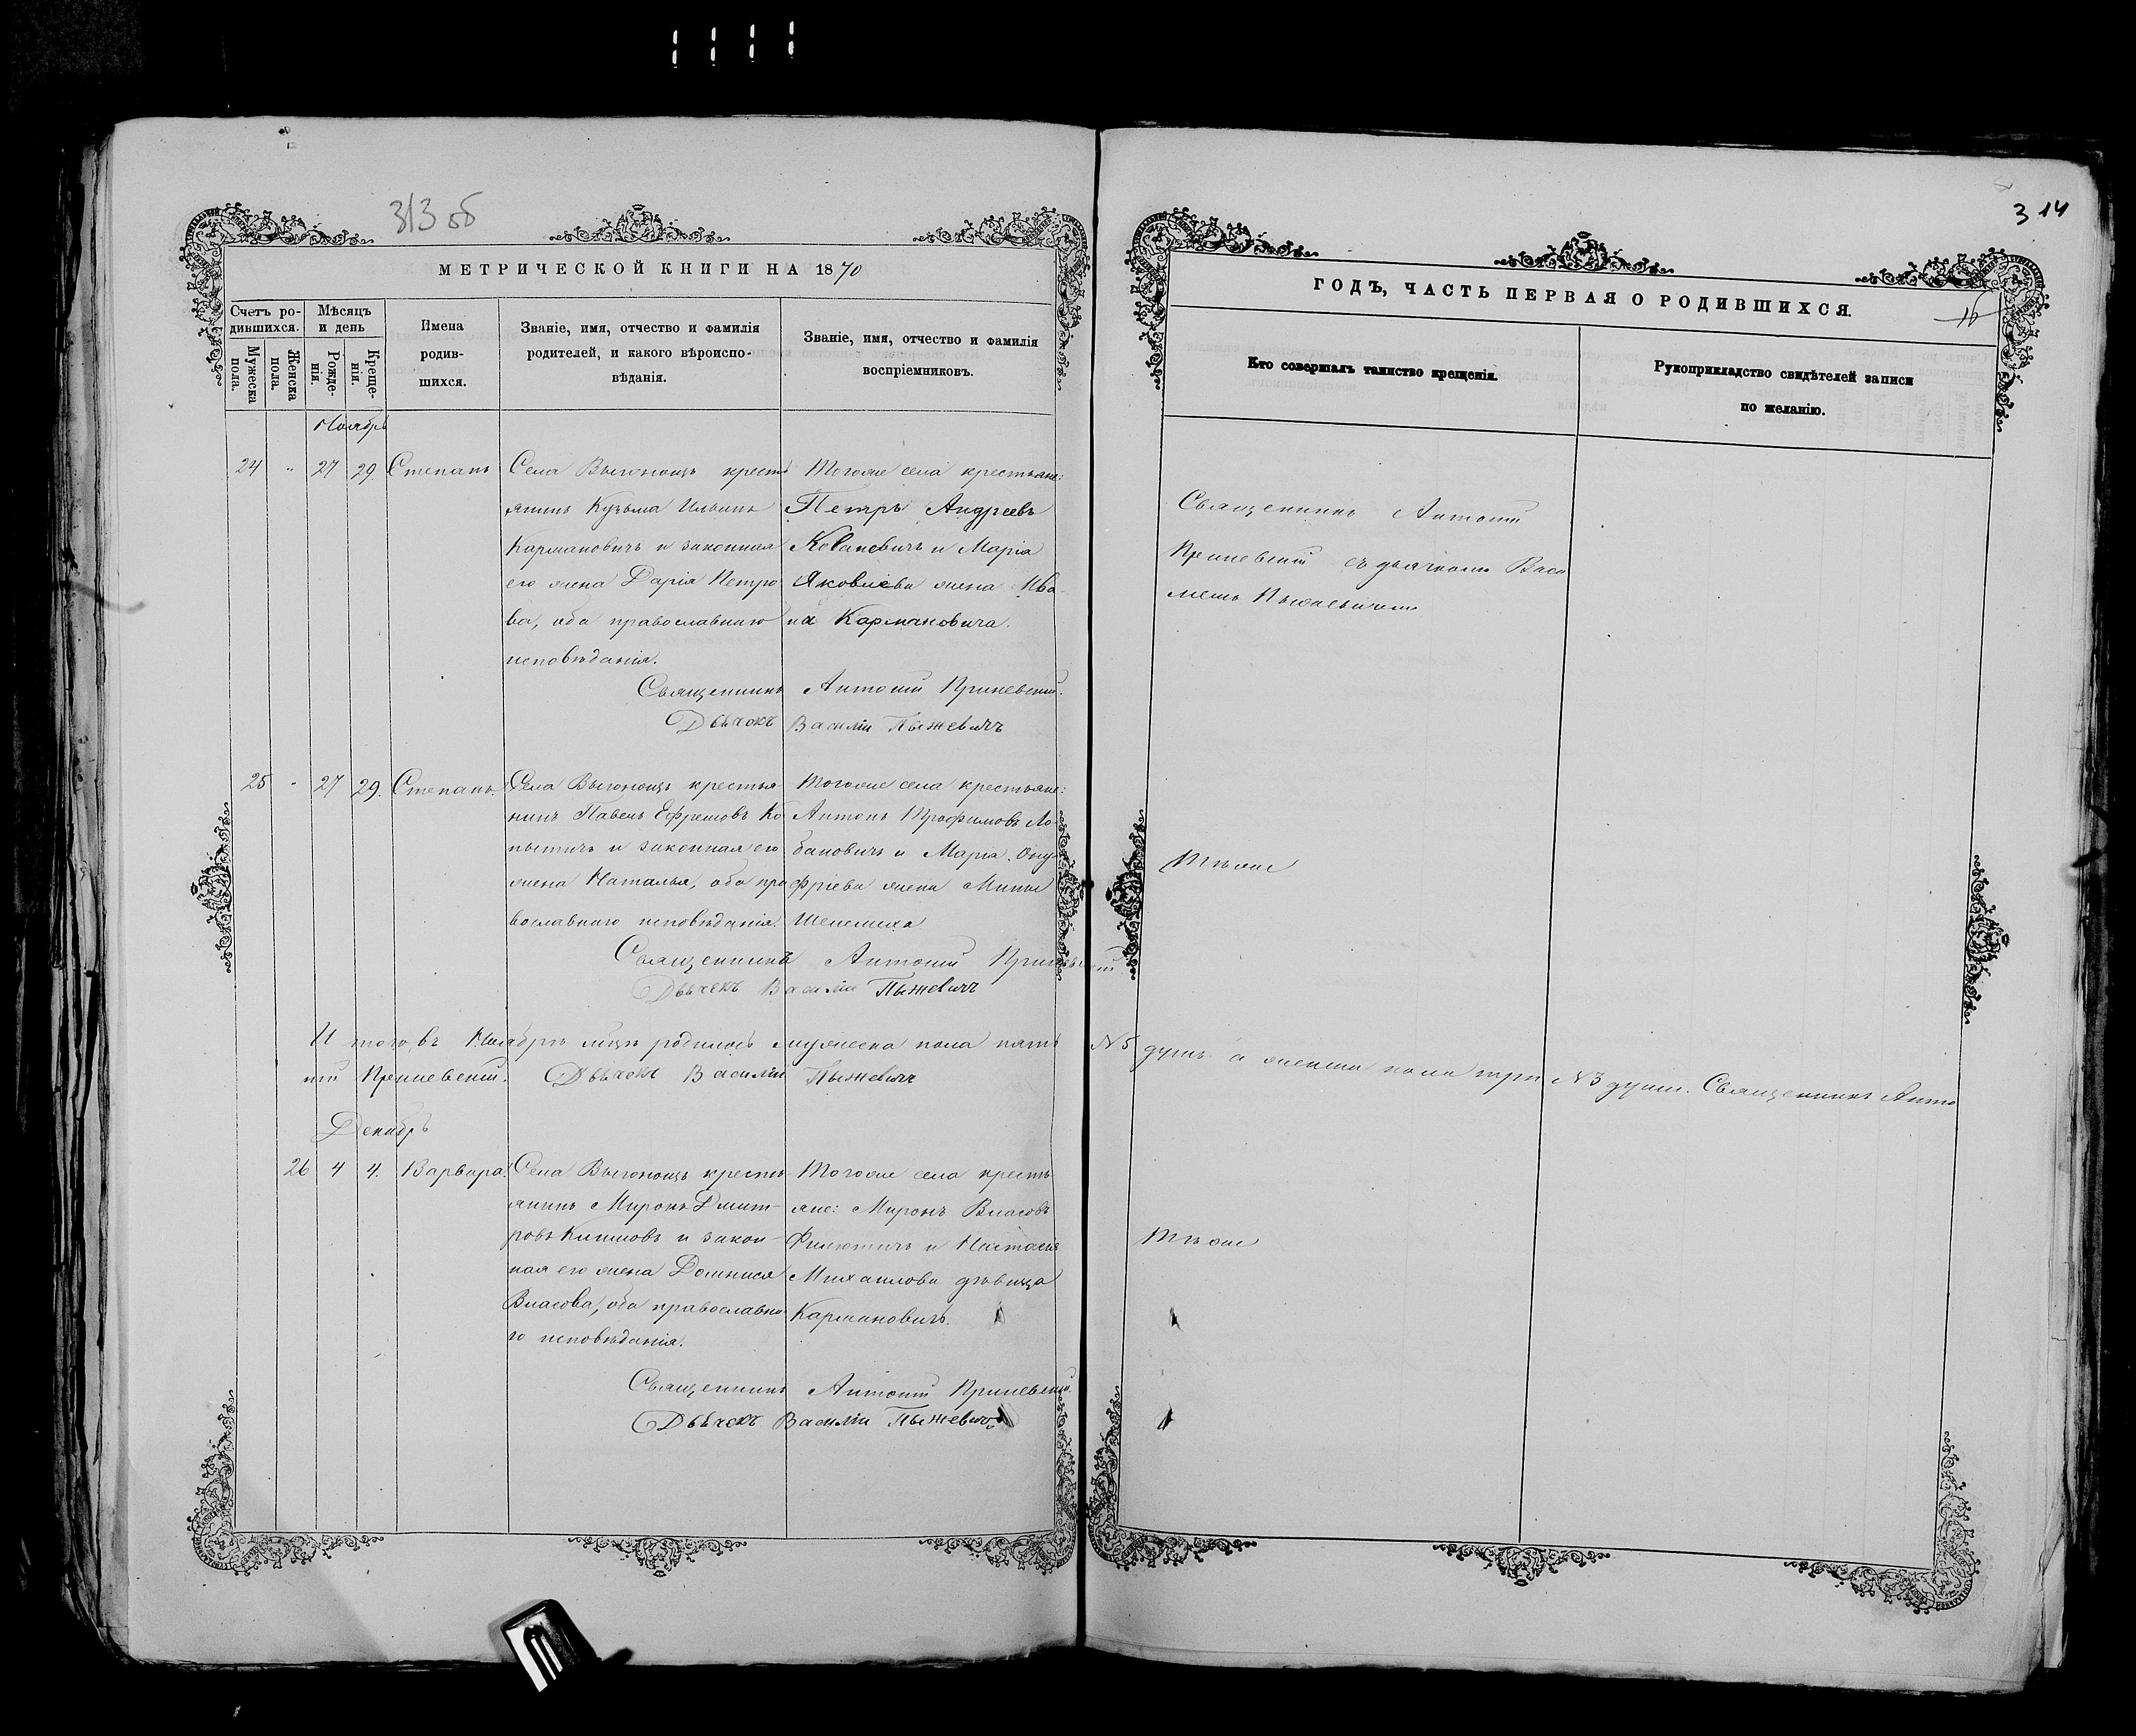 313 об
МЕТРИЧЕСКОЙ КНИГИ НА 1870
Счетъ ро-
дившихся.
Мужеска
пола.
Женска
пола.
Мѣсяцъ
и день
Рожде-
нія.
Креще-
нія.
Имена
родив-
шихся.
Званіе, имя, отчество и фамилія
родителей, и какого вѣроиспо-
вѣданія.
Званіе, имя, отчество и фамилія
воспріемниковъ.
Ноябрь
24 " 27 29. Степанъ
Села Выгонощъ кресть
янинъ Кузьма Ильинъ
Кармановичъ и законная
его жена Дарія Петро
ва, оба православнаго
исповѣданія.
Тогоже села крестьяне:
Петръ Андреевъ
и Марія
Яковлева жена Ива-
на Кармановича.
Священникъ Антоній
Дьячокъ Василій Пыжевичъ
25 " 27 29. Степанъ.
Села Выгонощъ крестья
нинъ Павелъ Ефремовъ Ко
пытичъ и законная его
жена Наталья, оба пра
вославнаго исповѣданія.
Тогоже села крестьяне:
Антонъ Трофимовъ Ло-
бановичъ и Марія Ону-
фріева жена
Священникъ Антоній
Дьячекъ Василій Пыжевичъ
И того въ Ноябрѣ мцѣ родилось мужеска пола пять
ній Дьячекъ Василій Пыжевичъ
Декабрь
26 4 4. Варвара.
Села Выгонощъ кресть
янинъ Миронъ Дмит-
ровъ и закон-
ная его жена Домникія
Власова, оба православна-
го исповѣданія.
Тогоже села кресть
яне: Миронъ Власовъ
и Настасія
Михаилова дѣвица
Кармановичъ.
Священникъ Антоній
Дьячекъ Василій Пыжевичъ
314
16
ГОДЪ, ЧАСТЬ ПЕРВАЯ О РОДИВШИХСЯ.
Кто совершалъ таинство крещенія.
Рукоприкладство свидѣтелей записи
по желанію.
Священникъ Антоній
съ дьячкомъ Васи
ліемъ Пыжевичемъ
Тѣже
№ 5 душъ а женска пола три № 3 души. Священникъ Анто
Тѣже